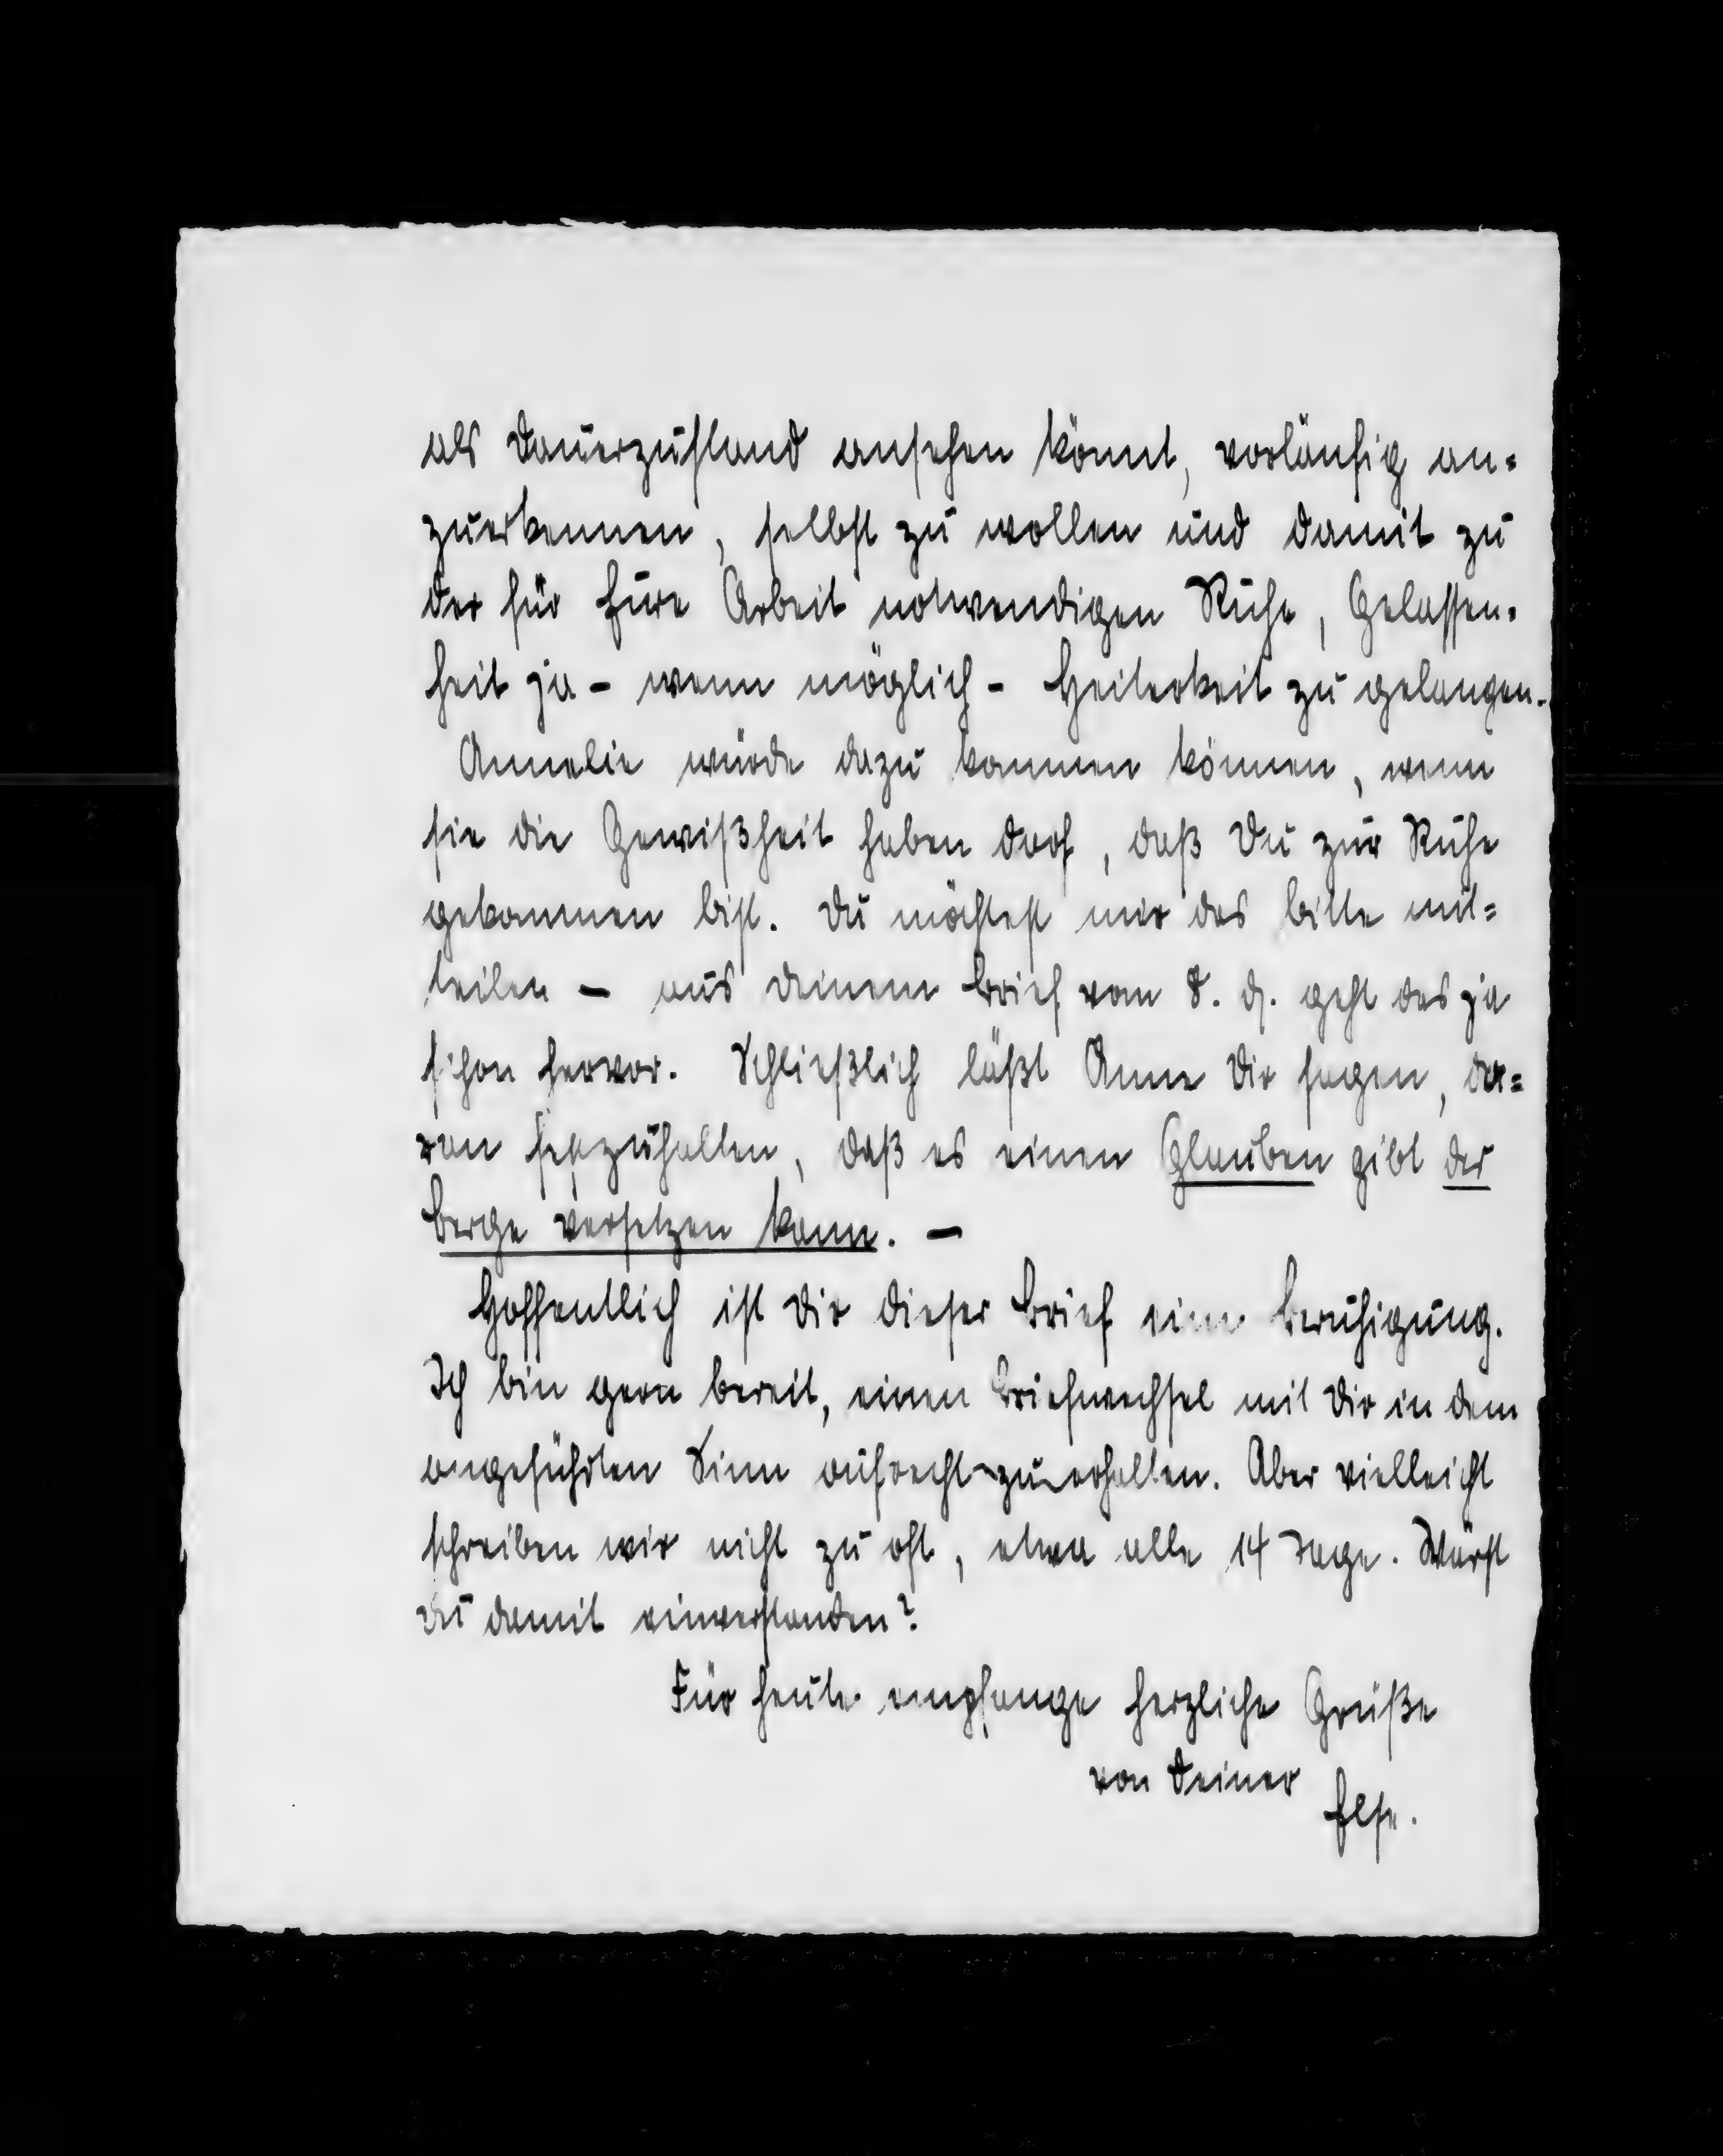 als Dauerzustand ansehen könnt, vorläufig an=
zuerkennen, selbst zu wollen und damit zu
der für Eure Arbeit notwendigen Ruhe, Gelassen=
heit ja - wenn möglich - Heiterkeit zu gelangen.
Annelie würde dazu kommen können, wenn
sie die Gewißheit haben darf, daß Du zur Ruhe
gekommen bist. Du möchtest mir das bitte mit=
teilen — aus Deinem Brief vom 8. d. geht das ja
schon hervor. Schließlich läßt Anne Dir sagen, da=
ran festzuhalten, daß es einen Glauben gibt der
Berge versetzen kann. —
Hoffentlich ist Dir dieser Brief eine Beruhigung.
Ich bin gern bereit, einen Briefwechsel mit Dir in dem
angeführten Sinn aufrecht zu erhalten. Aber vielleicht
schreiben wir nicht zu oft, etwa alle 14 Tage. Wärst
Du damit einverstanden?
Für heute empfange herzliche Grüße
von Deiner
Else.